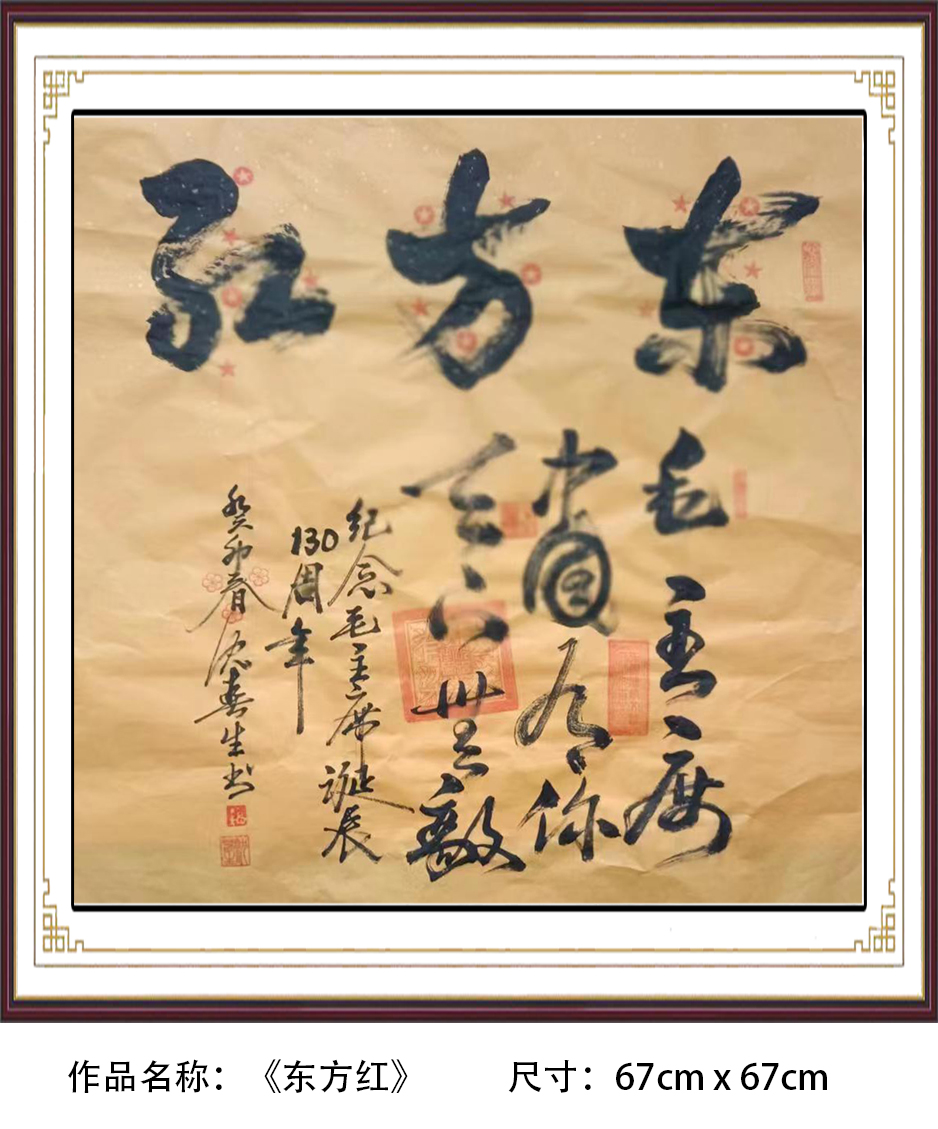 东方红
毛主席
中國有你
天下無敵
纪念毛主席诞辰
130周年
癸卯春 生书
作品名称：《东方红》
尺寸：67cm x 67cm